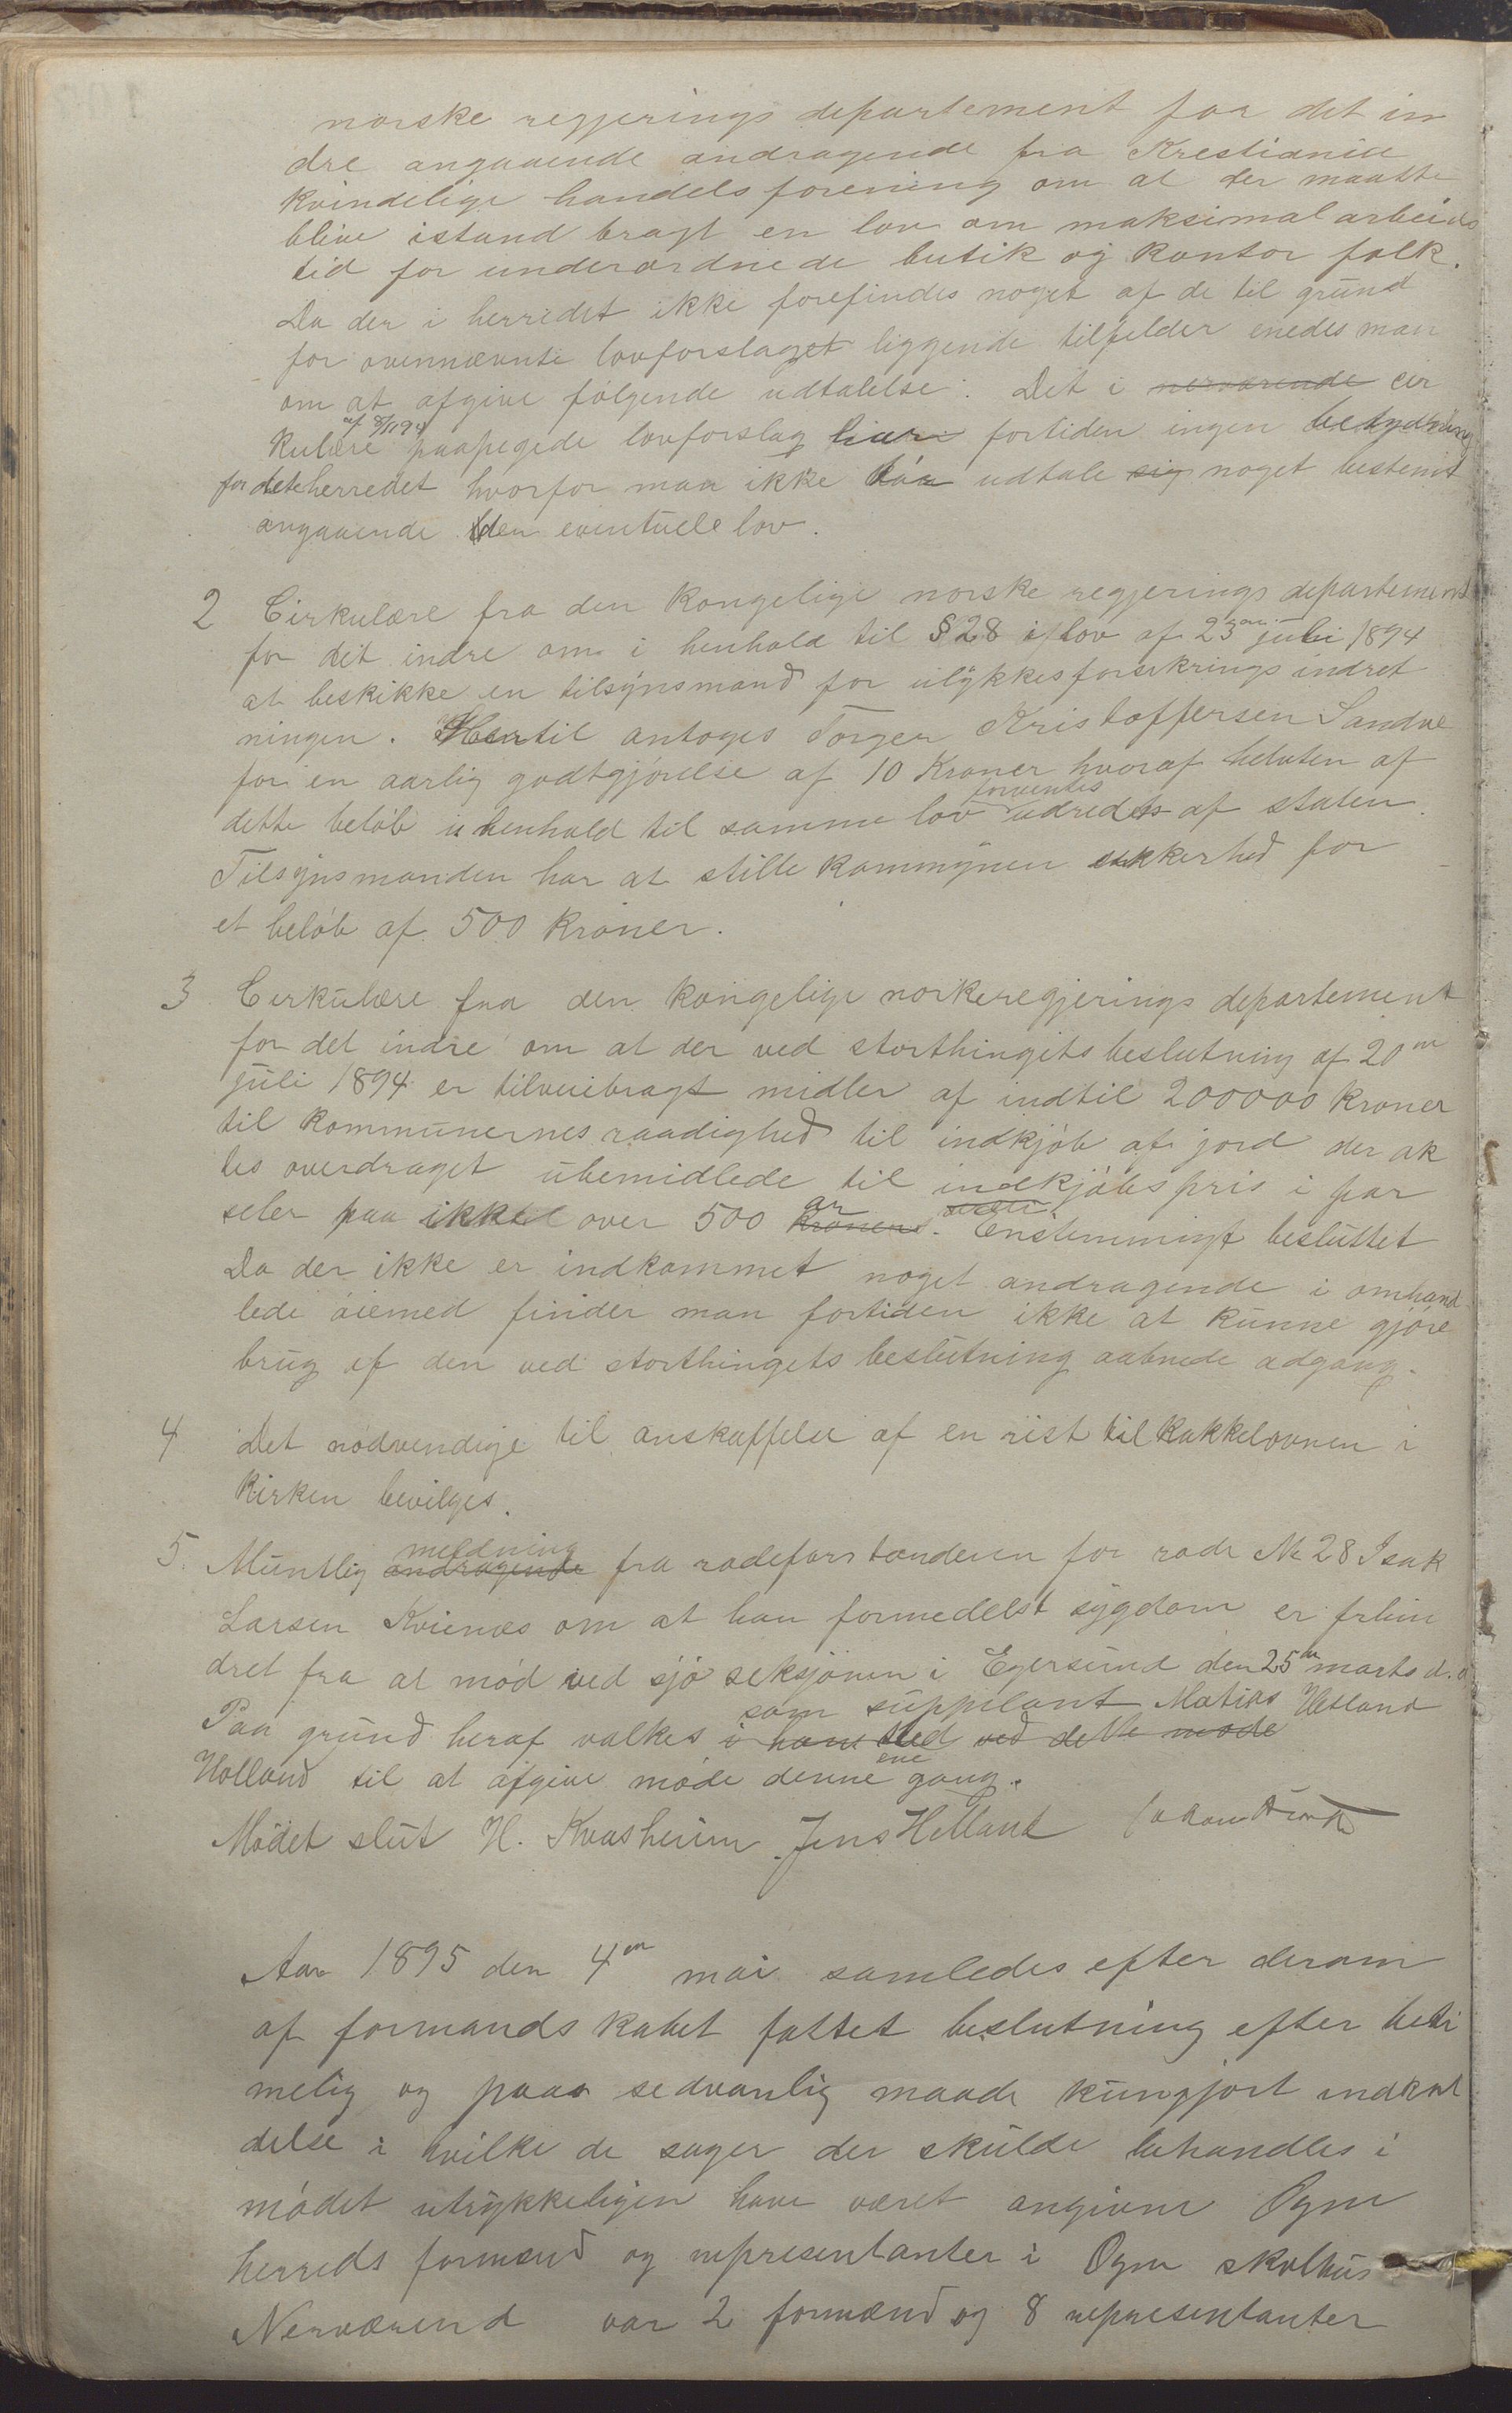 norske regjerings departement for det in
dre angaaende andragende fra Krestiania
kvindelige handelsforening om at der maatte
blive istand bragt en lov om maksimal arbeids
tid for underordnede butik og kontor folk.
Da der i herredet ikke forefindes noget af de til grund
for ovennævnte lovforslaget liggende tilfelder enedes man
om at afgive følgende udtalelse: Det i nerværende cir
kulære af 8/11 94 paapegede lovforslag har fortiden ingen betydning
for dette herredet hvorfor man ikke udtale sig noget bestemt
angaaende den eventuelle lov.
2 Cirkulære fra den kongelige norske regjerings departement
for det indre om i henhold til § 28 i lov af 23 juli 1894
at beskikke en tilsynsmand for ulykkesforsikrings indret
ningen. Hertil antoges Torger Kristoffersen Sandve
for en aarlig godtgjørelse af 10 Kroner hvoraf helvten af
dette beløb i henhold til samme lov forventes udredet af staten.
Tilsynsmanden har at stille kommunen sikkerhed for
et beløb af 500 kroner.
3 Cirkulære fra den kongelige norske regjerings departement
for det indre om at der ved storthingets beslutning af 20de
juli 1894 er tilveiebragt midler af indtil 200000 kroner
til kommunernes raadighed til indkjøb af jord der ak
tes overdraget ubemidlede til indkjøbspris i par
seler paa ikke over 500 kroners ar. Enstemmigt besluttet
Da der ikke er indkommet noget andragende i omhand
lede øiemed finder man fortiden ikke at kunne gjøre
brug af den ved storthingets beslutning aabnede adgang.
4 Det nødvendige til anskaffelse af en rist til kakkelovnen i
kirken bevilges.
5. Muntlig andragende meldning fra rodeforstanderen for rode No 28 Isak
Larsen Kvienes om at han formedelst sygdom er forhin
dret fra at mød ved sjø seksjonen i Egersund den 25de marts d. a
som suppelant Matias Hetland
Paa grund heraf valkes i hans sted ved dette møde
Holland til at afgive møde denne ene gang.
Mødet slut H. Kvasheim Jens Helland
Aar 1895 den 4de mai samledes efter derom
af formandskabet fattet beslutning efter beti
melig og paa sedvanlig maade kungjort indkal
delse i hvilke de sager der skulde behandles i
mødet utrykkeligen have været angivne Ogne
herreds formænd og representanter i Ogne skolhus
Nerværend var 2 formænd og 8 representanter